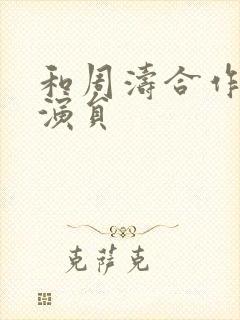 和周涛合作
演员
克萨克